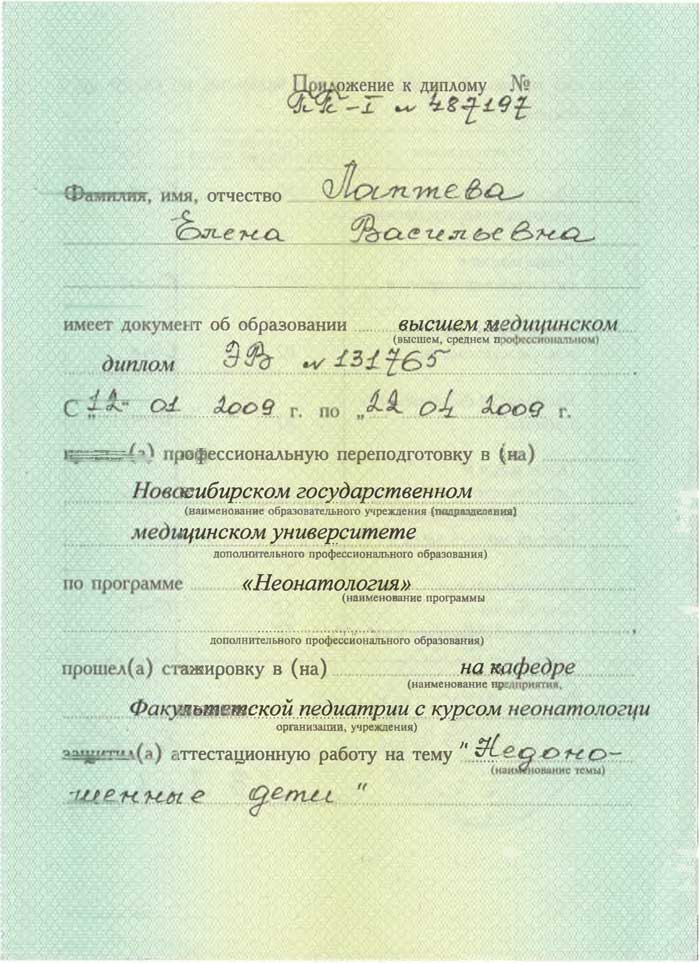 Приложение к диплому №
ПП-I № 487197
Фамилия, имя, отчество Лаптева
Елена Васильевна
имеет документ об образовании высшем медицинском
(высшем, среднем профессиональном)
диплом ЭВ № 131765
С „12“ 01 2009 г. по „22 04 2009 г.
(а) профессиональную переподготовку в (на)
Новосибирском государственном
(наименование образовательного учреждения (подразделения)
медицинском университете
дополнительного профессионального образования)
по программе «Неонатология»
(наименование программы
дополнительного профессионального образования)
прошел(а) стажировку в (на) на кафедре
(наименование предприятия,
Факультетской педиатрии с курсом неонатологци
организации, учреждения)
защитил(а) аттестационную работу на тему "Недоно-
(наименование темы)
шенные дети"